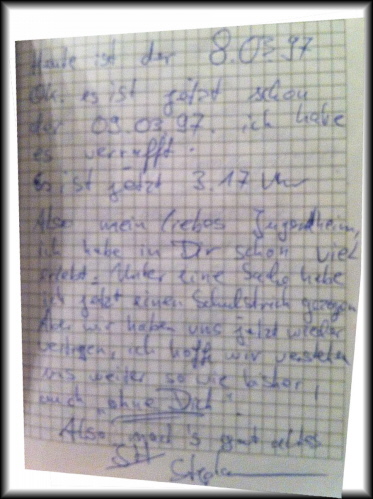 Heute ist der 8.03.97
Ok. es ist jetzt schon
der 09.03.97. ich habe
es verrafft.
Es ist jetzt 3.17 Uhr
Also mein liebes Jugendheim,
ich habe in Dir schon viel
erlebt. Unter eine Sache habe
ich jetzt einen Schlußstrich gezogen
Aber wir haben uns jetzt wieder
vertragen, ich hoff wir verstehen
uns weiter so wie bisher,
auch "ohne Dich".
Also mach's gut altes